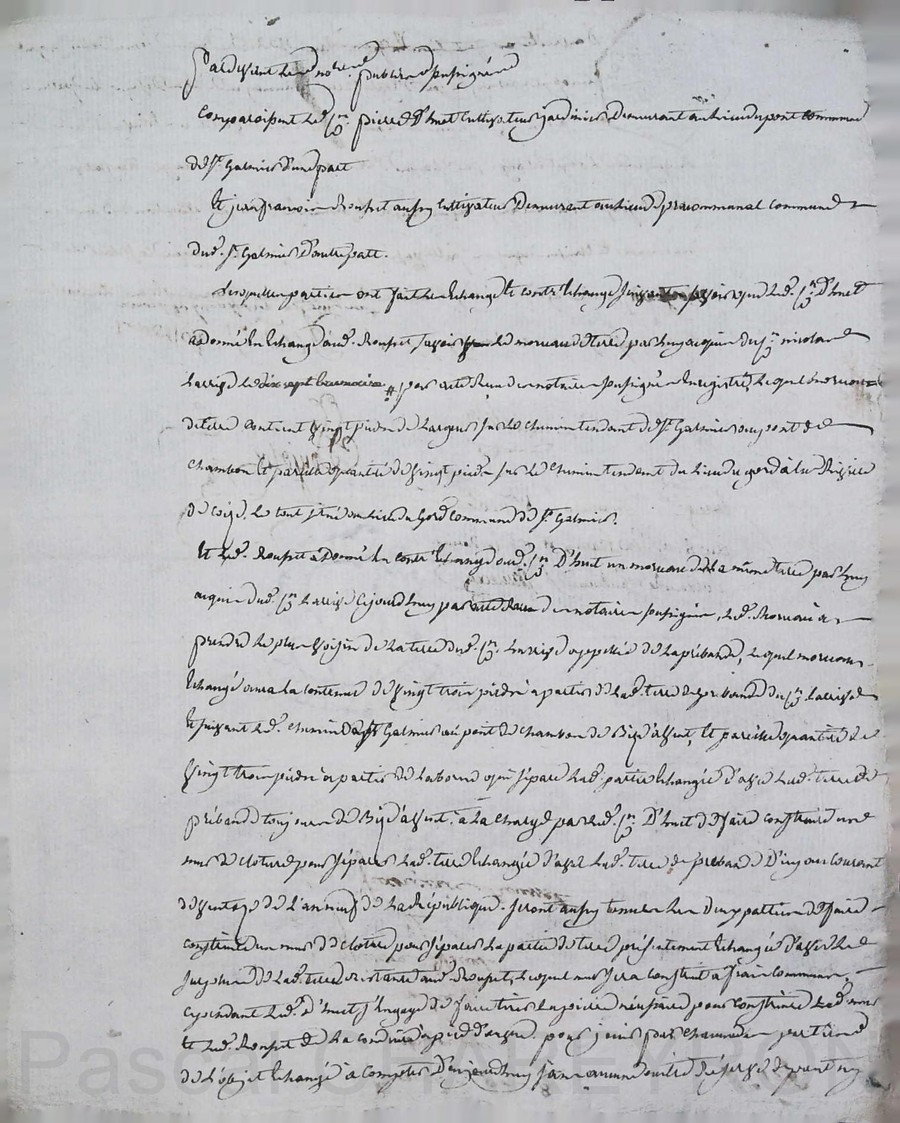 Pardevant les notres publics soussignés
Comparoissent le Sr pierre D'huet cultivateur jardinier Demeurant au lieu du pont commune
de St Galmier d'une part
Et jean francois Rousset aussy cultivateur Demeurant au lieu de precommunal commune
dud. St Galmier d'autre part.
Lesquelles parties ont fait les Echange et contr'echange suivants savoir que led. Sr D'huet
a Donné En Echange aud. Rousset savoir le morceau de terre par luy acquis du Sr nicolas
Larrige le dix sept brumaire par acte des notaires soussignés Enregistré, Lequel morceau
de terre contient vingt pieds de largeur sur le chemin tendant de St Galmier au pont de
Chambon et pareille quantité de vingt pieds sur le chemin tendant du lieu du gord à la Rivière
de Coize, le tout situé au lieu du Gord commune de St Galmier.
Et led. Rousset a Donné En contr'Echange aud. Sr D'huet un morceau de la même terre par luy
acquis dud. Sr Larrige cejourd'huy par acte des notaires soussignés, led. Morceau à
prendre le plus voisin de la terre dud. Sr Larrige appellée de la prébande, Lequel morceau
Echangé aura la contenue de vingt trois pieds a partir de lad. terre de prebande du Sr Larrige
Et suivant led. chemin de St Galmier au pont de Chambon de Bize à vent, et pareille quantité de
vingt trois pieds a partir de la borne qui sépare lad. partie Echangée d'avec lad. terre de
prébande toujours de Bize à vent. à la charge par led. Sr D'huet de faire construire un
mur de cloture pour séparer lad. terre Echangée d'avec lad. terre de prebande D'icy au courant
de ventose de l'an neuf de la République. Seront aussy tenues les Deux parties de faire
construire un mur de cloture pour séparer la partie de terre présentement Echangée d'avec le
surplus de lad. terre restante aud. Rousset, Lequel mur sera construit à frais communs,
cependant led. d'huet s'engage de faire tirer la pierre nécessaire pour construire led. mur
et led. Rousset de la conduire à pied d'œuvre, pour jouir par chacune des parties
de l'objet Echangé a compter D'aujourd'huy sans aucune